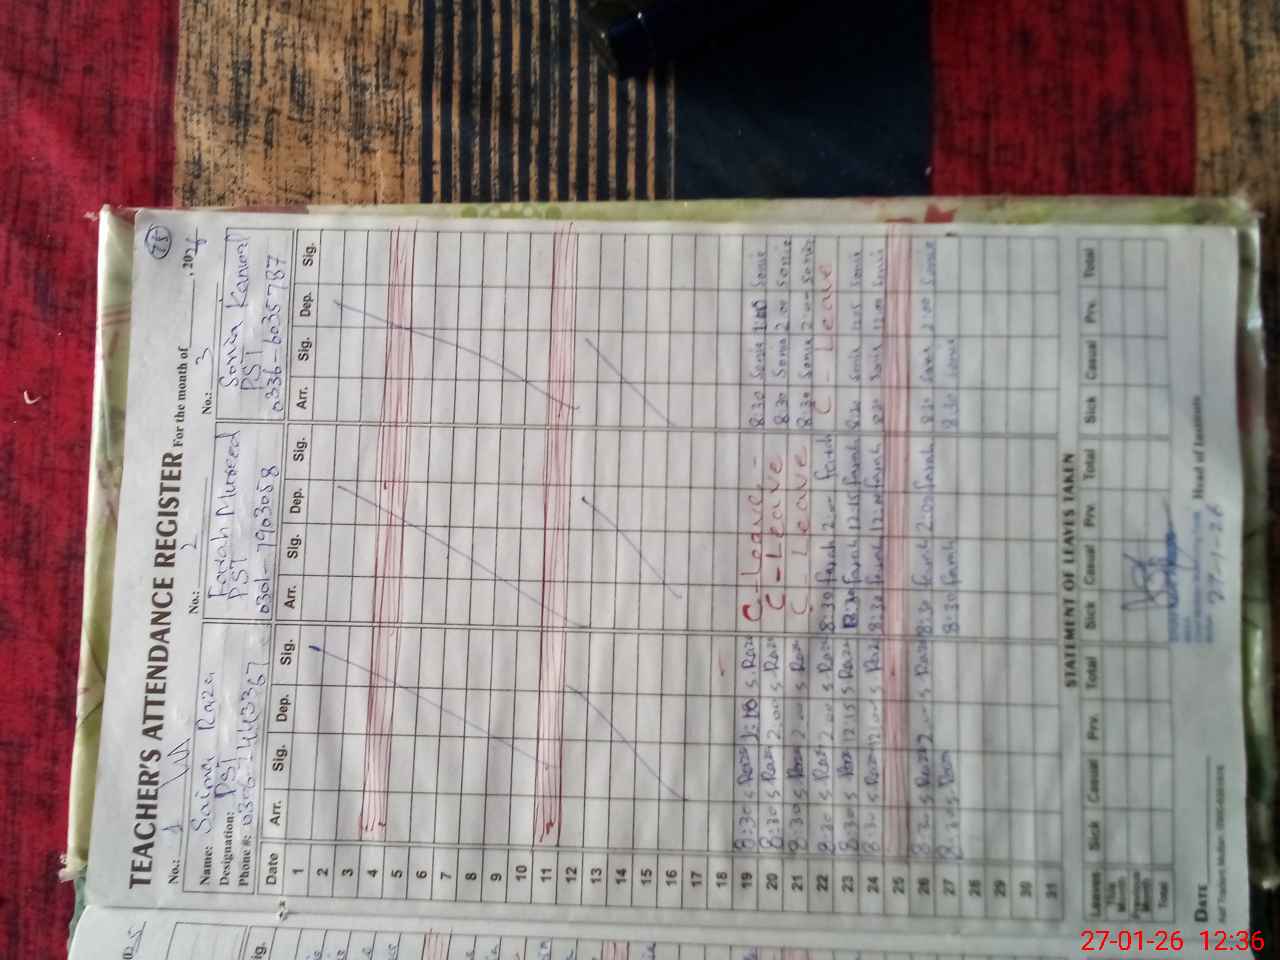 75
TEACHER'S ATTENDANCE REGISTER For the month of , 2026
No.: 1 No.: 2 No.: 3
Name: Saima Raza Farah Sonia Kanwal
Designation: PST PST PST
Phone #: 0301-7903058 0336-6035787
Date Arr. Sig. Dep. Sig. Arr. Sig. Dep. Sig. Arr. Sig. Dep. Sig.
1
2
3
4
5
6
7
8
9
10
11
12
13
14
15
16
17
18
19 8:30 S.Raza S.Raza C-Leave- 8:30 Sonia Sonia
20 8:30 S.Raza 2:00 S.Raza C-Leave 8:30 Sonia 2:00 Sonia
21 8:30 S.Raza 2:00 S.Raza C-Leave 8:30 Sonia 2:00 Sonia
22 8:30 S.Raza 2:00 S.Raza 8:30 Farah 2:00 Farah C-Leave
23 8:30 S.Raza 12:15 S.Raza 8:30 Farah 12:15 Farah 8:30 Sonia 12:15 Sonia
24 8:30 S.Raza 12:00 S.Raza 8:30 Farah 12:00 Farah 8:30 Sonia 12:00 Sonia
25
26 8:30 S.Raza 2:00 S.Raza 8:30 Farah 2:00 Farah 8:30 Sonia 2:00 Sonia
27 8:30 S.Raza 8:30 Farah 8:30 Sonia
28
29
30
31
STATEMENT OF LEAVES TAKEN
Leaves Sick Casual Prv. Total Sick Casual Prv. Total Sick Casual Prv. Total
This Month
Previous Month
Total
DATE Head of Institute
27-1-26
27-01-26 12:36